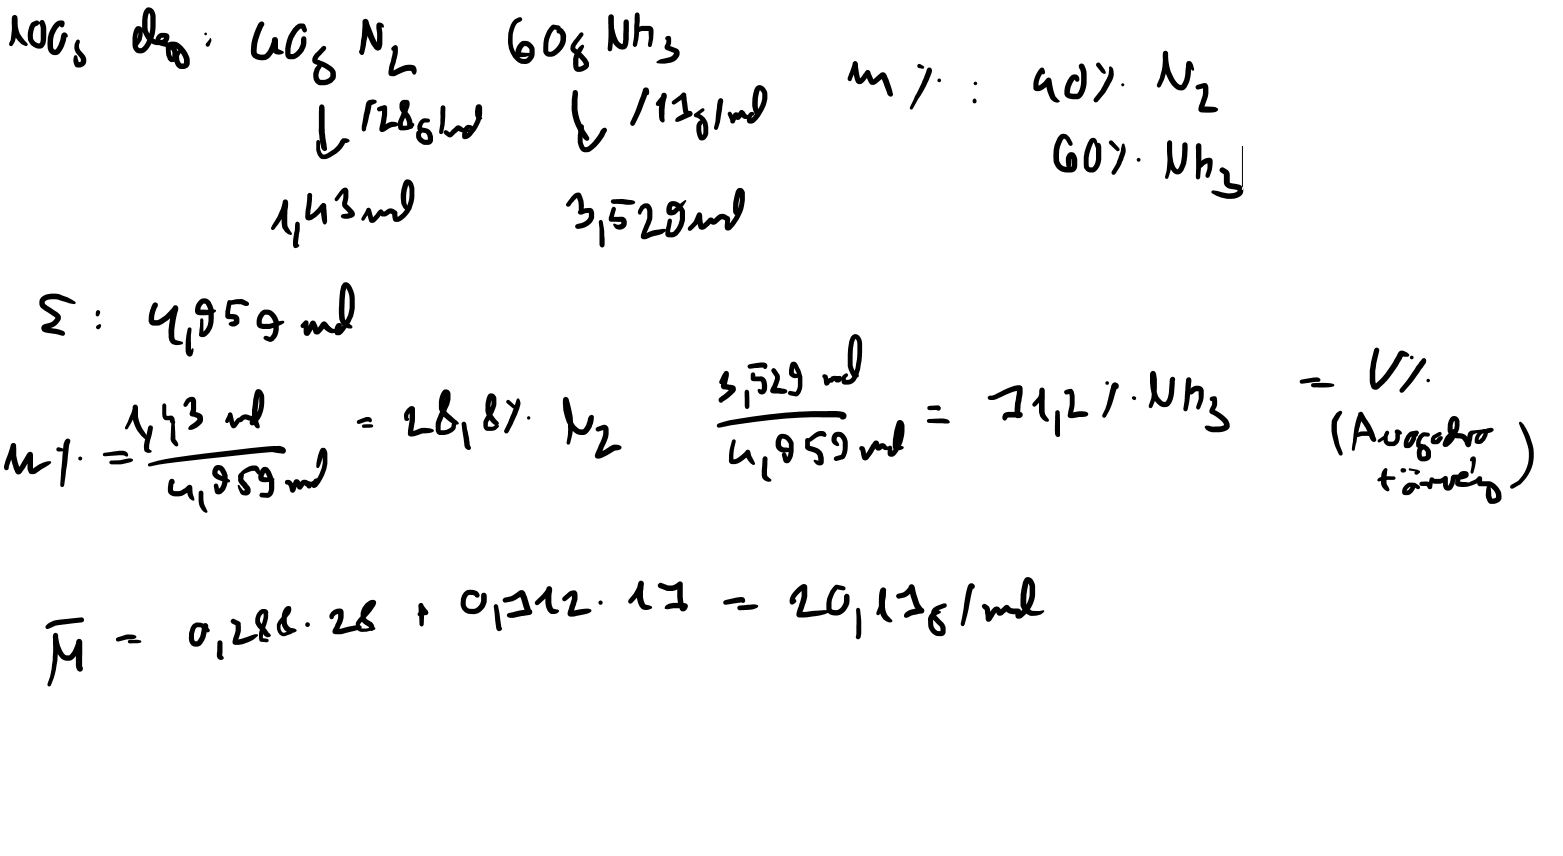 100g elegy: 40g N₂ 60g Nh₃ m%: 40% N₂
↓ /28g/mol ↓ /17g/mol 60% Nh₃
1,43 mol 3,529 mol
Σ: 4,959 mol
n% = 1,43 mol / 4,959 mol = 28,8% N₂ 3,529 mol / 4,959 mol = 71,2% Nh₃ = V%
(Avogadro
törvény)
M̄ = 0,288 · 28 + 0,712 · 17 = 20,17g/mol